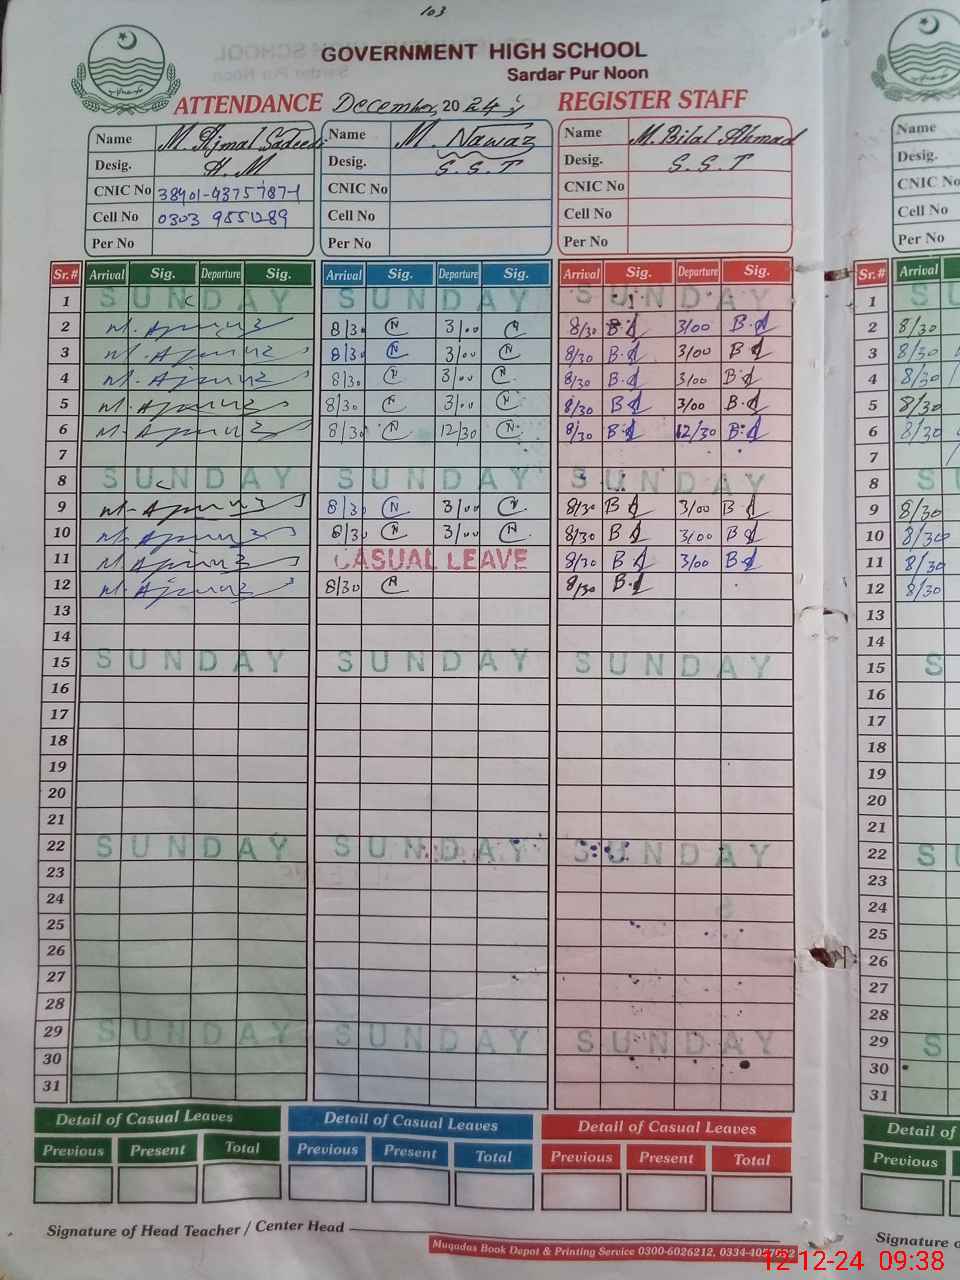 103
GOVERNMENT HIGH SCHOOL
Sardar Pur Noon
ATTENDANCE December, 2024 REGISTER STAFF
Name M. Ajmal Name M. Nawaz Name M. Bilal Ahmad Name
Desig. H.M Desig. S.S.T Desig. S.S.T Desig.
CNIC No CNIC No CNIC No CNIC No
Cell No Cell No Cell No Cell No
Per No Per No Per No Per No
Sr.# Arrival Sig. Departure Sig. Arrival Sig. Departure Sig. Arrival Sig. Departure Sig. Sr.# Arrival
1 SUNDAY SUNDAY SUNDAY 1 SU
2 8/30 N 3/00 N 8/30 3/00 2 8/30
3 8/30 N 3/00 N 8/30 3/00 3 8/30
4 8/30 N 3/00 N 8/30 3/00 4 8/30
5 8/30 N 3/00 N 8/30 3/00 5 8/30
6 8/30 N 12/30 N 8/30 12/30 6 8/30
7 7
8 SUNDAY SUNDAY SUNDAY 8 S
9 8/30 N 3/00 N 8/30 3/00 9 8/30
10 8/30 N 3/00 N 8/30 3/00 10 8/30
11 CASUAL LEAVE 8/30 3/00 11 8/30
12 8/30 N 8/30 12 8/30
13 13
14 14
15 SUNDAY SUNDAY SUNDAY 15 S
16 16
17 17
18 18
19 19
20 20
21 21
22 SUNDAY SUNDAY SUNDAY 22 SU
23 23
24 24
25 25
26 26
27 27
28 28
29 SUNDAY SUNDAY SUNDAY 29 S
30 30
31 31
Detail of Casual Leaves Detail of Casual Leaves Detail of Casual Leaves Detail of
Previous Present Total Previous Present Total Previous Present Total Previous
Signature of Head Teacher / Center Head Signature
Muqadas Book Depot & Printing Service 0300-6026212,
12-12-24 09:38